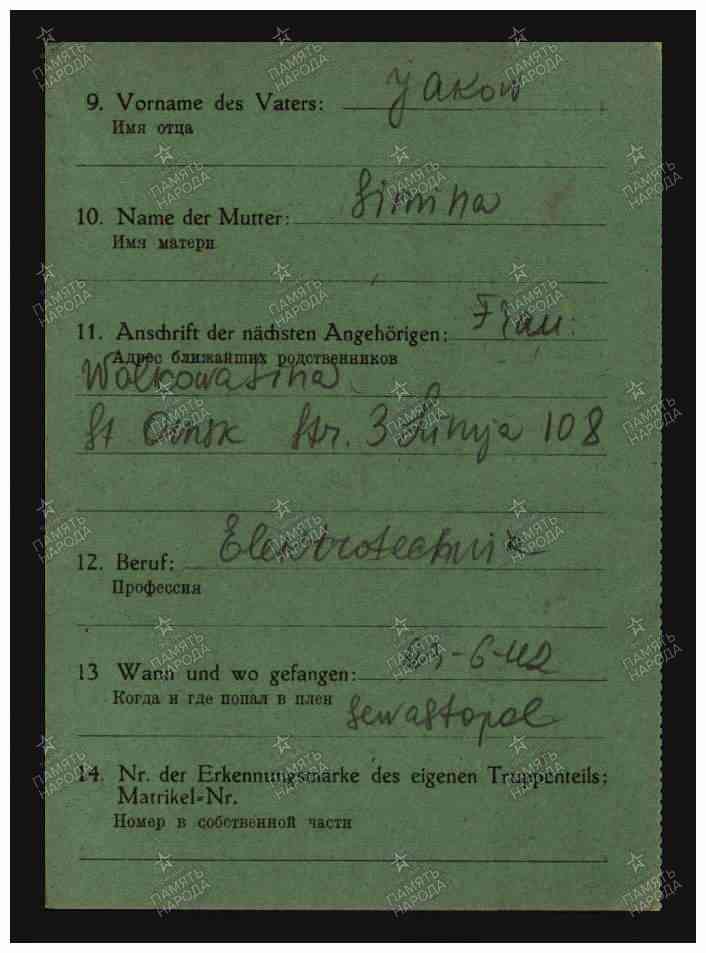 9. Vorname des Vaters: Jakow
Имя отца
10. Name der Mutter: Simina
Имя матери
11. Anschrift der nächsten Angehörigen: Frau:
Адрес ближайших родственников
Wolkowa Sina
St Omsk Str. 3 Linija 108
12. Beruf: Elektrotechnik
Профессия
13 Wann und wo gefangen: -6-42
Когда и где попал в плен
Sewastopol
14. Nr. der Erkennungsmarke des eigenen Truppenteils:
Matrikel-Nr.
Номер в собственной части
ПАМЯТЬ НАРОДА